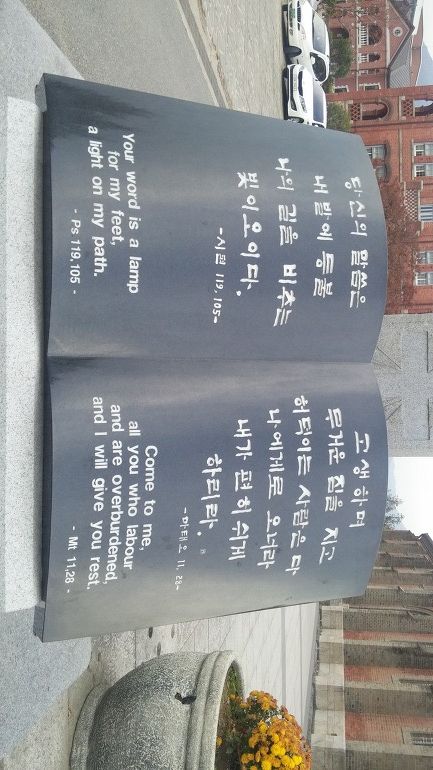 당신의 말씀은
내 발에 등불
나의 길을 비추는
빛이오이다.
-시편 119,105-
Your word is a lamp
for my feet,
a light on my path.
- Ps 119,105 -
고생하며
무거운 짐을 지고
허덕이는 사람은 다
나에게로 오너라
내가 편히 쉬게
하리라.
-마태오 11, 28-
Come to me,
all you who labour
and are overburdened,
and I will give you rest.
- Mt 11,28 -